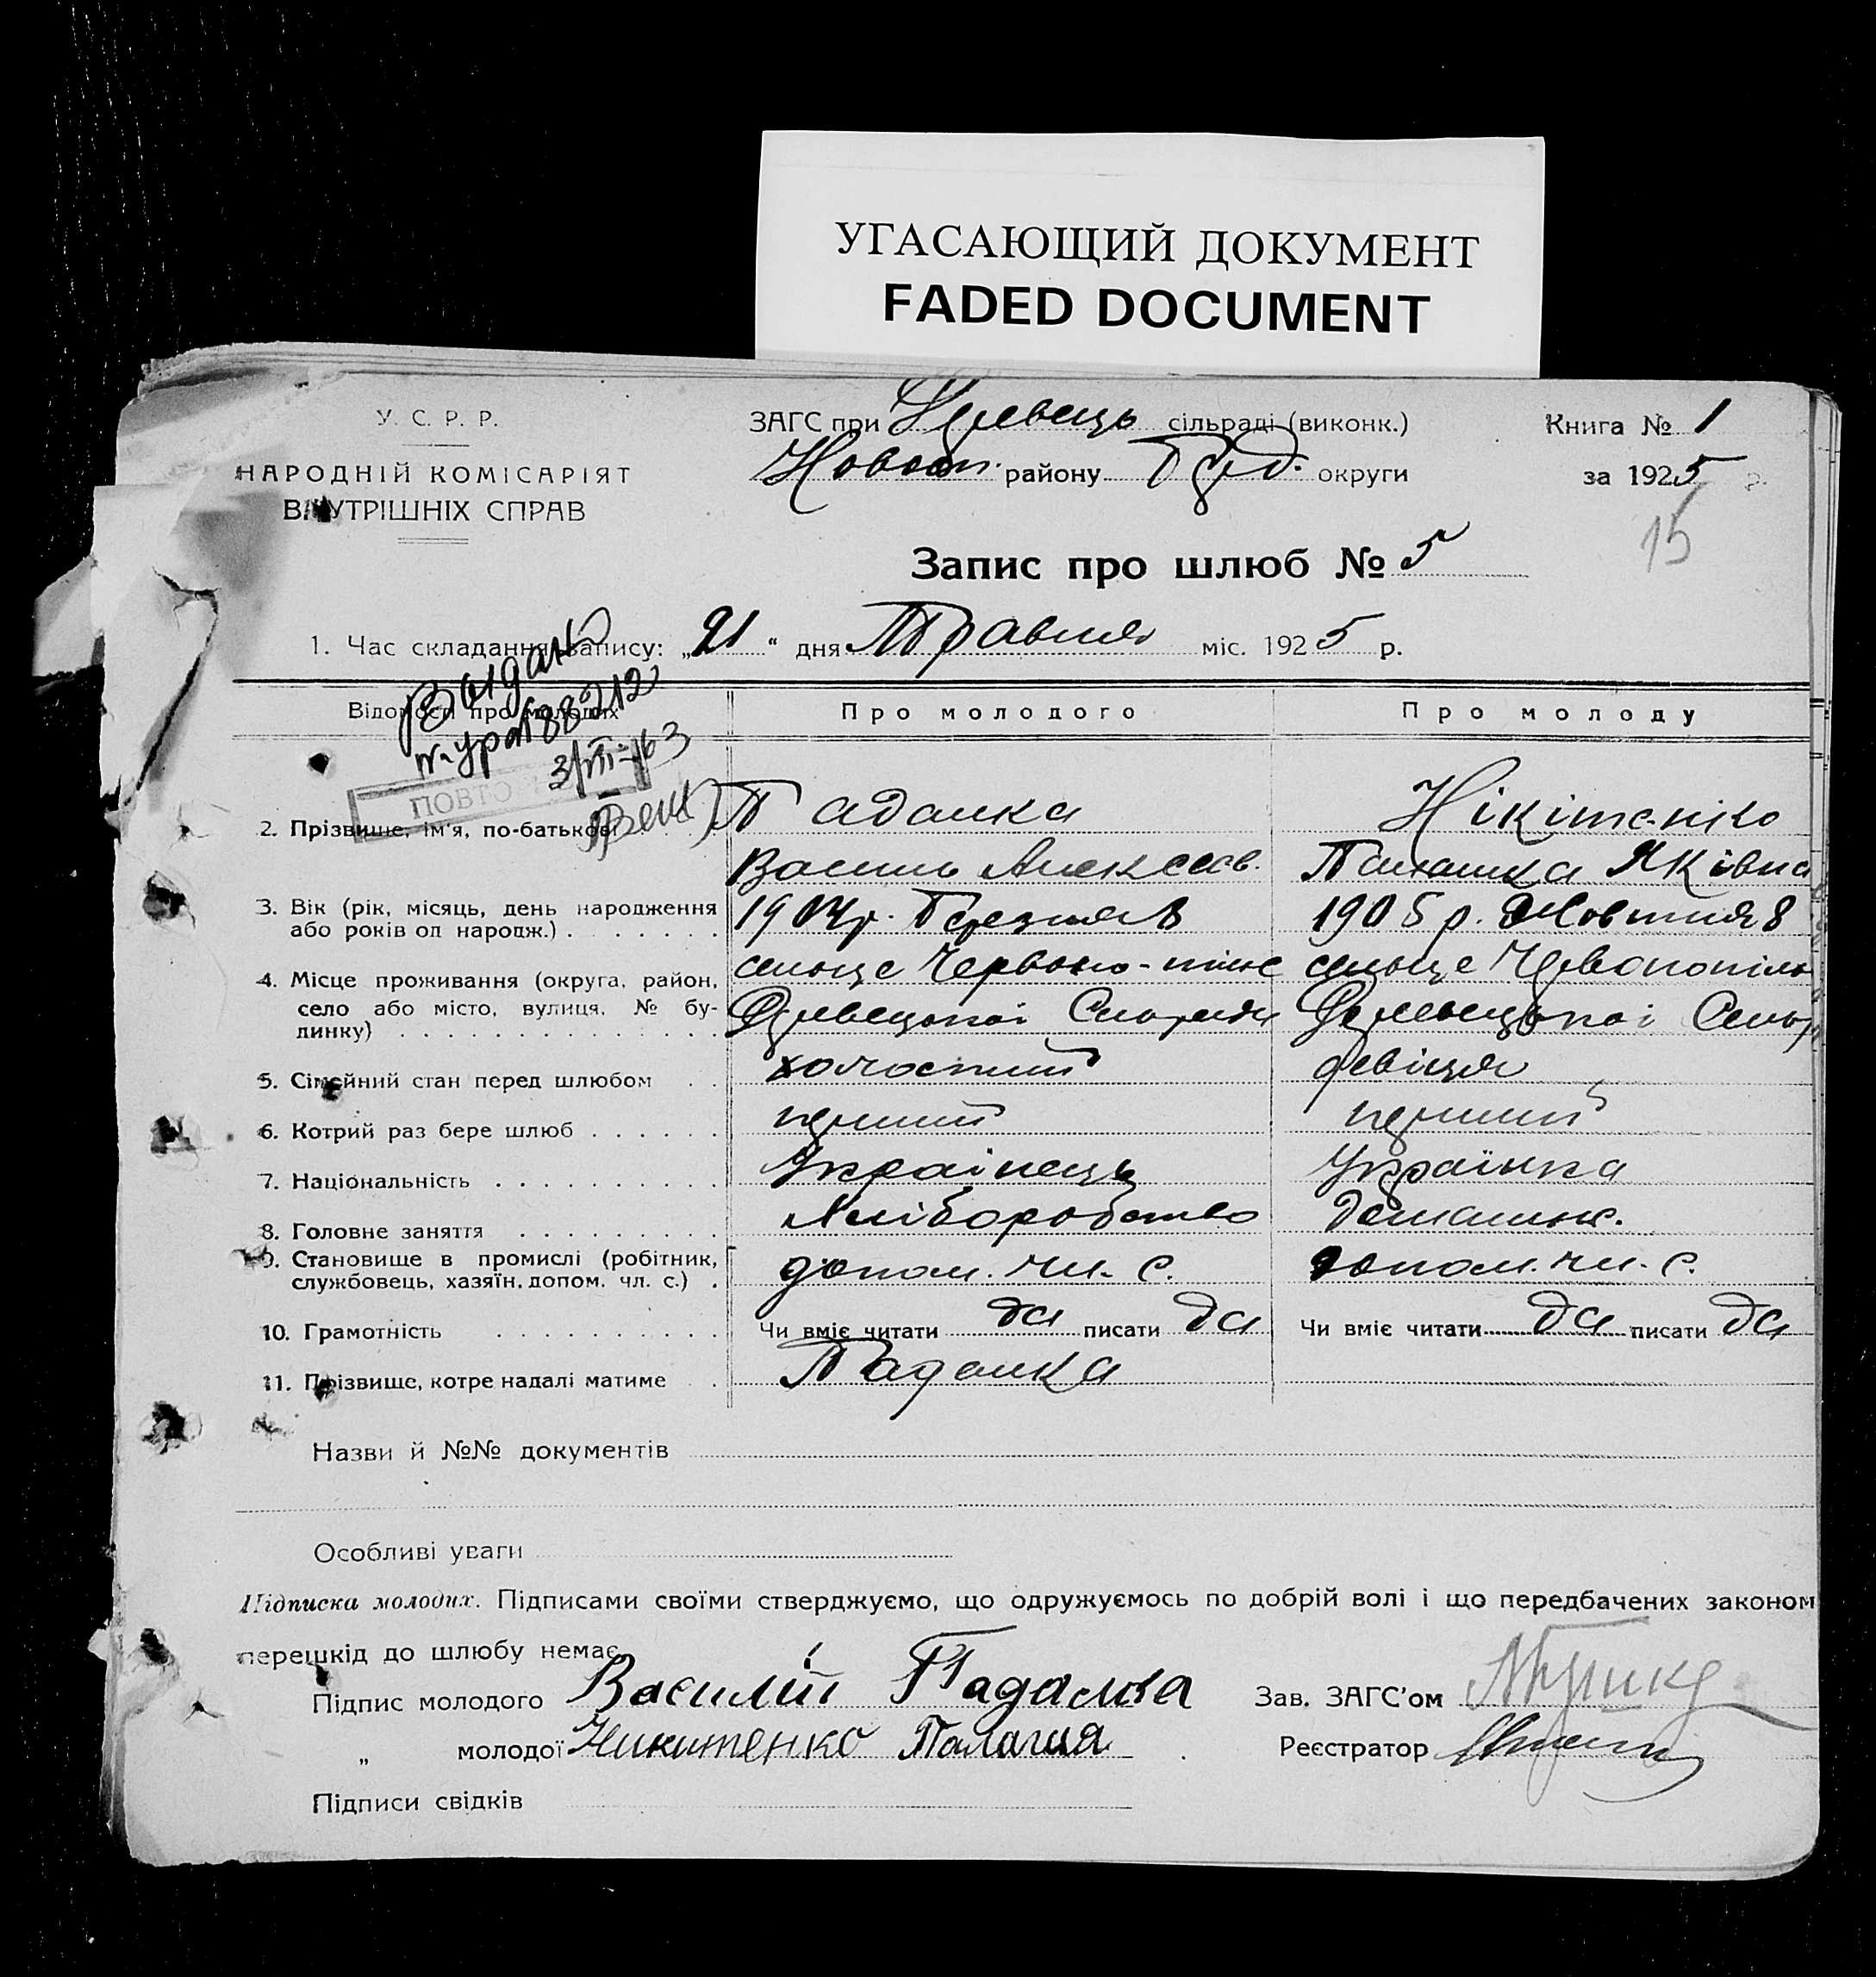 УГАСАЮЩИЙ ДОКУМЕНТ
FADED DOCUMENT
У. С. Р. Р.
НАРОДНІЙ КОМІСАРІЯТ
ВНУТРІШНІХ СПРАВ
ЗАГС при сільраді (виконк.)
Новосп. району Берд. округи
Книга № 1
за 1925 р.
15
Запис про шлюб № 5
1. Час складання запису: „21“ дня Травня міс. 1925 р.
Відомості про молодих
Про молодого
Про молоду
Выдано
88212
3/III-63
ПОВТО
2. Прізвище, ім'я, по-батькові
Падалка
Василь Алексеев.
Нікітенко
Яківна
3. Вік (рік, місяць, день народження
або років од народж.)
1904 р. Березня 8
1905 р. Жовтня 8
4. Місце проживання (округа, район,
село або місто, вулиця, № бу-
динку)
сельце Червоно-
сельце
5. Сімейний стан перед шлюбом
холостий
девіця
6. Котрий раз бере шлюб
перший
перший
7. Національність
Українець
Українка
8. Головне заняття
Хліборобство
домашнє.
9. Становище в промислі (робітник,
службовець, хазяїн, допом. чл. с.)
допом. чл. с.
допом. чл. с.
10. Грамотність
Чи вміє читати да писати да
Чи вміє читати да писати да
11. Прізвище, котре надалі матиме
Падалка
Назви й №№ документів
Особливі уваги
Підписка молодих. Підписами своїми стверджуємо, що одружуємось по добрій волі і що передбачених законом
перешкід до шлюбу немає
Підпис молодого Василий Падалка
Зав. ЗАГС'ом
„ молодої Никитенко Палагия
Реєстратор
Підписи свідків